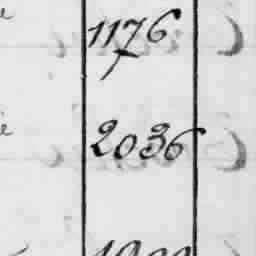 1176
2036